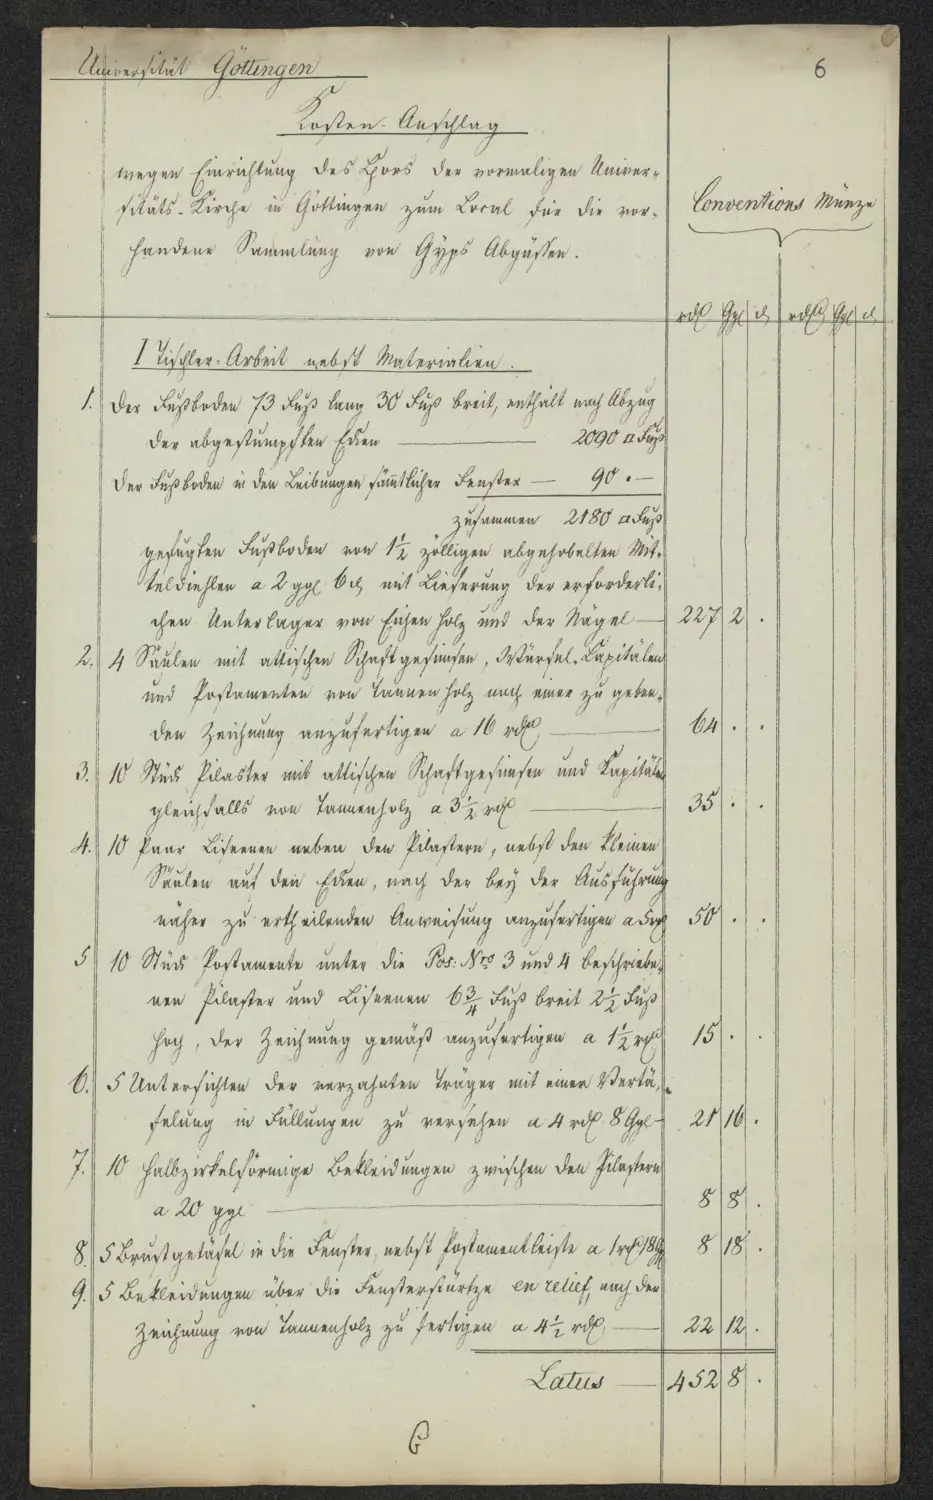 Universität Göttingen
6
Kosten-Anschlag
wegen Einrichtung des Chors der vormaligen Univer-
sitäts-Kirche in Göttingen zum Local für die vor-
handene Sammlung von Gyps Abgüssen.
Conventions Münze
rdl Ggl d rdl Ggl d
I Tischler-Arbeit nebst Materialien.
1. Der Fußboden 73 Fuß lang 30 Fuß breit, enthält nach Abzug
der abgestumpften Ecken — 2090 □ Fuß
Der Fußboden in den Leibungen sämtlicher Fenster — 90 " —
zusammen 2180 □ Fuß
gefugten Fußboden von 1½ zölligen abgehobelten Mit-
teldiehlen a 2 ggl 6 d, mit Lieferung der erforderli-
chen Unterlager von Eichen Holz und der Nägel — 227 2 .
2. 4 Säulen mit attischen Schaftgesimsen, Würfel-Capitälen
und Postamenten von Tannen Holz nach einer zu geben-
den Zeichnung anzufertigen a 16 rdl — 64 . .
3. 10 Stück Pilaster mit attischen Schaftgesimsen und Kapitälen
gleichfalls von Tannenholz a 3½ rdl — 35 . .
4. 10 Paar Liseenen neben den Pilastern, nebst den kleinen
Säulen auf den Ecken, nach der bey der Ausführung
näher zu ertheilenden Anweisung anzufertigen a 5 rdl 50 . .
5 10 Stück Postamente unter die Pos: Nro 3 und 4 beschriebe-
nen Pilaster und Liseenen 6¾ Fuß breit 2½ Fuß
hoch, der Zeichnung gemäß anzufertigen a 1½ rdl 15 . .
6. 5 Untersichten der verzahnten Träger mit einer Vertä-
felung in Füllungen zu versehen a 4 rdl 8 Ggl — 21 16 .
7. 10 halbzirkelförmige Bekleidungen zwischen den Pilastern
a 20 ggl — 8 8 .
8. 5 Brustgetäfel in die Fenster, nebst Postamentleiste a 1 rdl 18 ggl 8 18 .
9. 5 Bekleidungen über die Fensterstürtze en relief, nach der
Zeichnung von Tannenholz zu fertigen a 4½ rdl — 22 12 .
Latus — 452 8 .